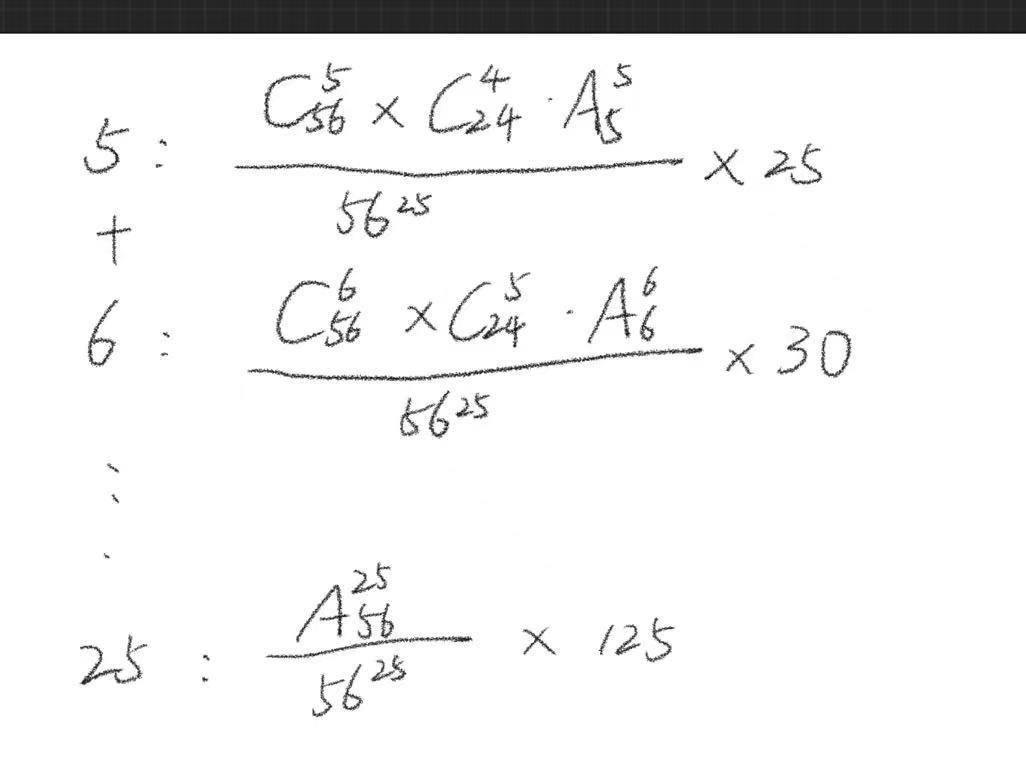 5 : \frac{C_{56}^{5} × C_{24}^{4} · A_{5}^{5}}{56^{25}} × 25
+
6 : \frac{C_{56}^{6} × C_{24}^{5} · A_{6}^{6}}{56^{25}} × 30
⋮
25 : \frac{A_{56}^{25}}{56^{25}} × 125